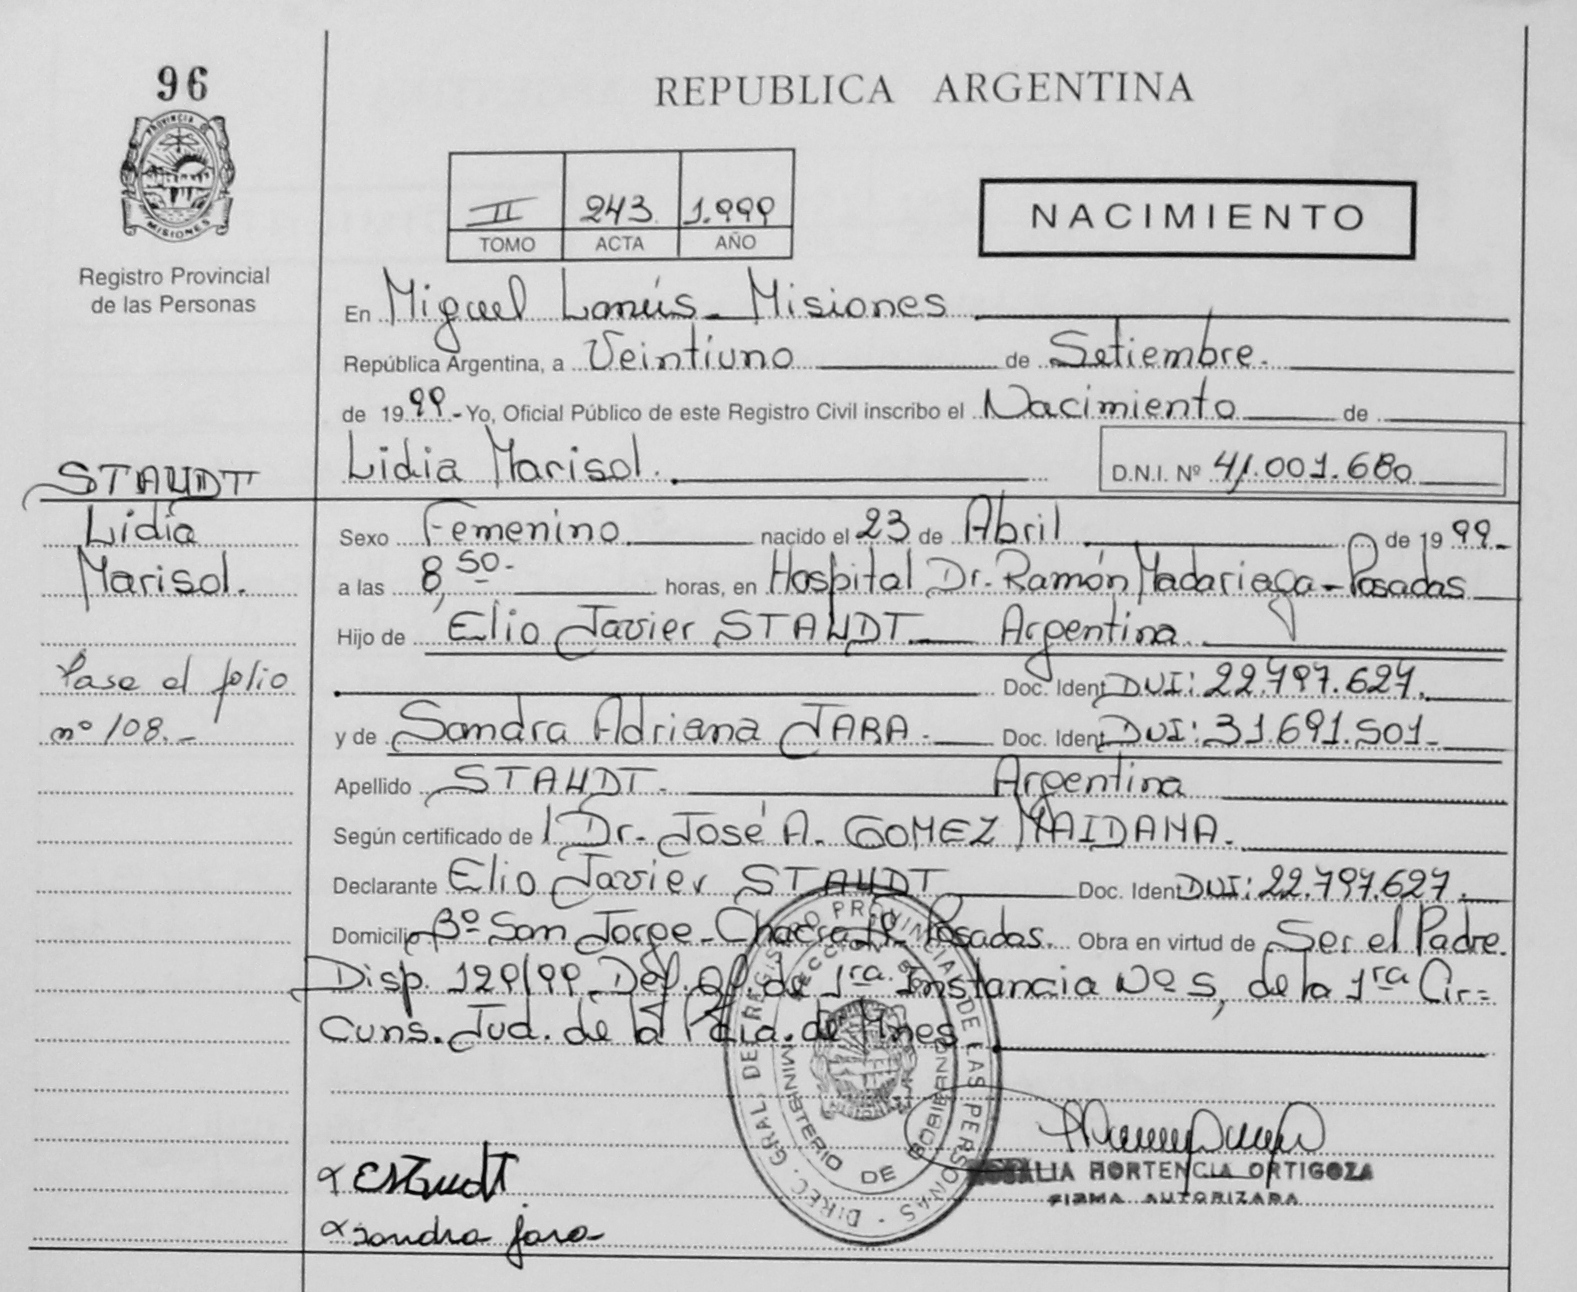 96
PROVINCIA DE
MISIONES
Registro Provincial
de las Personas
REPUBLICA ARGENTINA
II 243 1.999
TOMO ACTA AÑO
NACIMIENTO
En Miguel Lanús - Misiones
República Argentina, a Veintiuno de Setiembre.
de 1999 - Yo, Oficial Público de este Registro Civil inscribo el Nacimiento de
Lidia Marisol. D.N.I. Nº 41.001.680
STAUDT
Lidia
Marisol.
Pase al folio
nº 108.-
Sexo Femenino nacido el 23 de Abril de 1999-
a las 8,50- horas, en Hospital Dr. Ramón Madariaga - Posadas
Hijo de Elio Javier STAUDT Argentina
Doc. Ident DNI: 22.797.627.
y de Sandra Adriana JARA. Doc. Ident DNI: 31.691.501-
Apellido STAUDT. Argentina
Según certificado de l Dr. José A. GOMEZ MAIDANA.
Declarante Elio Javier STAUDT Doc. Ident DNI: 22.797.627.
Domicilio Bº San Jorge - Chacra Posadas. Obra en virtud de Ser el Padre.
Disp. 129/99 Def. Of. de 1ra. Instancia Nº 5, de la 1ra Cir=
cuns. Jud. de la Pcia. de Mnes.
DIREC. GRAL. DEL REGISTRO PROVINCIAL DE LAS PERSONAS
MINISTERIO DE GOBIERNO
EStaudt
Sandra Jara
ROSALIA HORTENCIA ORTIGOZA
FIRMA AUTORIZADA